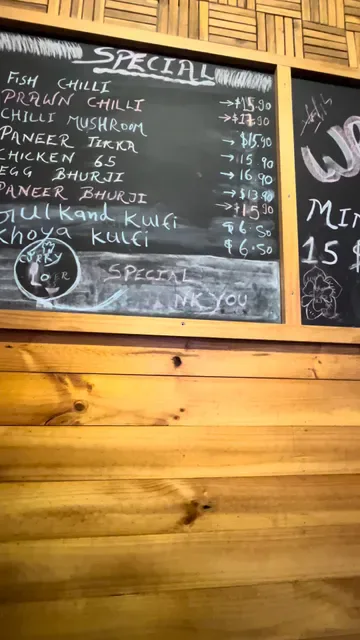 SPECIAL
FISH CHILLI →$15.90
PRAWN CHILLI →$17.90
CHILLI MUSHROOM →$15.90
PANEER TIKKA →15.90
CHICKEN 65 →16.90
EGG BHURJI →$13.90
PANEER BHURJI →$15.90
GULKAND KULFI $6.50
Khoya kulfi $6.50
SPECIAL
NK YOU
MIN
15 $